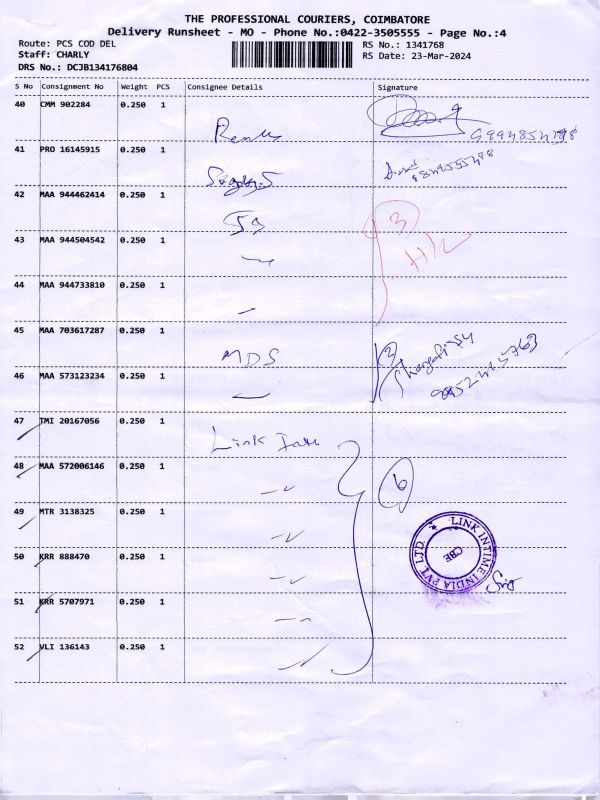 THE PROFESSIONAL COURIERS, COIMBATORE
Delivery Runsheet - MO - Phone No.:0422-3505555 - Page No.:4
Route: PCS COD DEL RS No.: 1341768
Staff: CHARLY RS Date: 23-Mar-2024
DRS No.: DCJB134176804
S No Consignment No Weight PCS Consignee Details Signature
40 CMM 902284 0.250 1
41 PRO 16145915 0.250 1
42 MAA 944462414 0.250 1
43 MAA 944504542 0.250 1
3
44 MAA 944733810 0.250 1
45 MAA 703617287 0.250 1
MDS
46 MAA 573123234 0.250 1
47 TMI 20167056 0.250 1
Link
48 MAA 572006146 0.250 1
6
49 MTR 3138325 0.250 1
50 KRR 888470 0.250 1
LINK INTIME INDIA PVT LTD.
CBE
51 KRR 5707971 0.250 1
52 VLI 136143 0.250 1